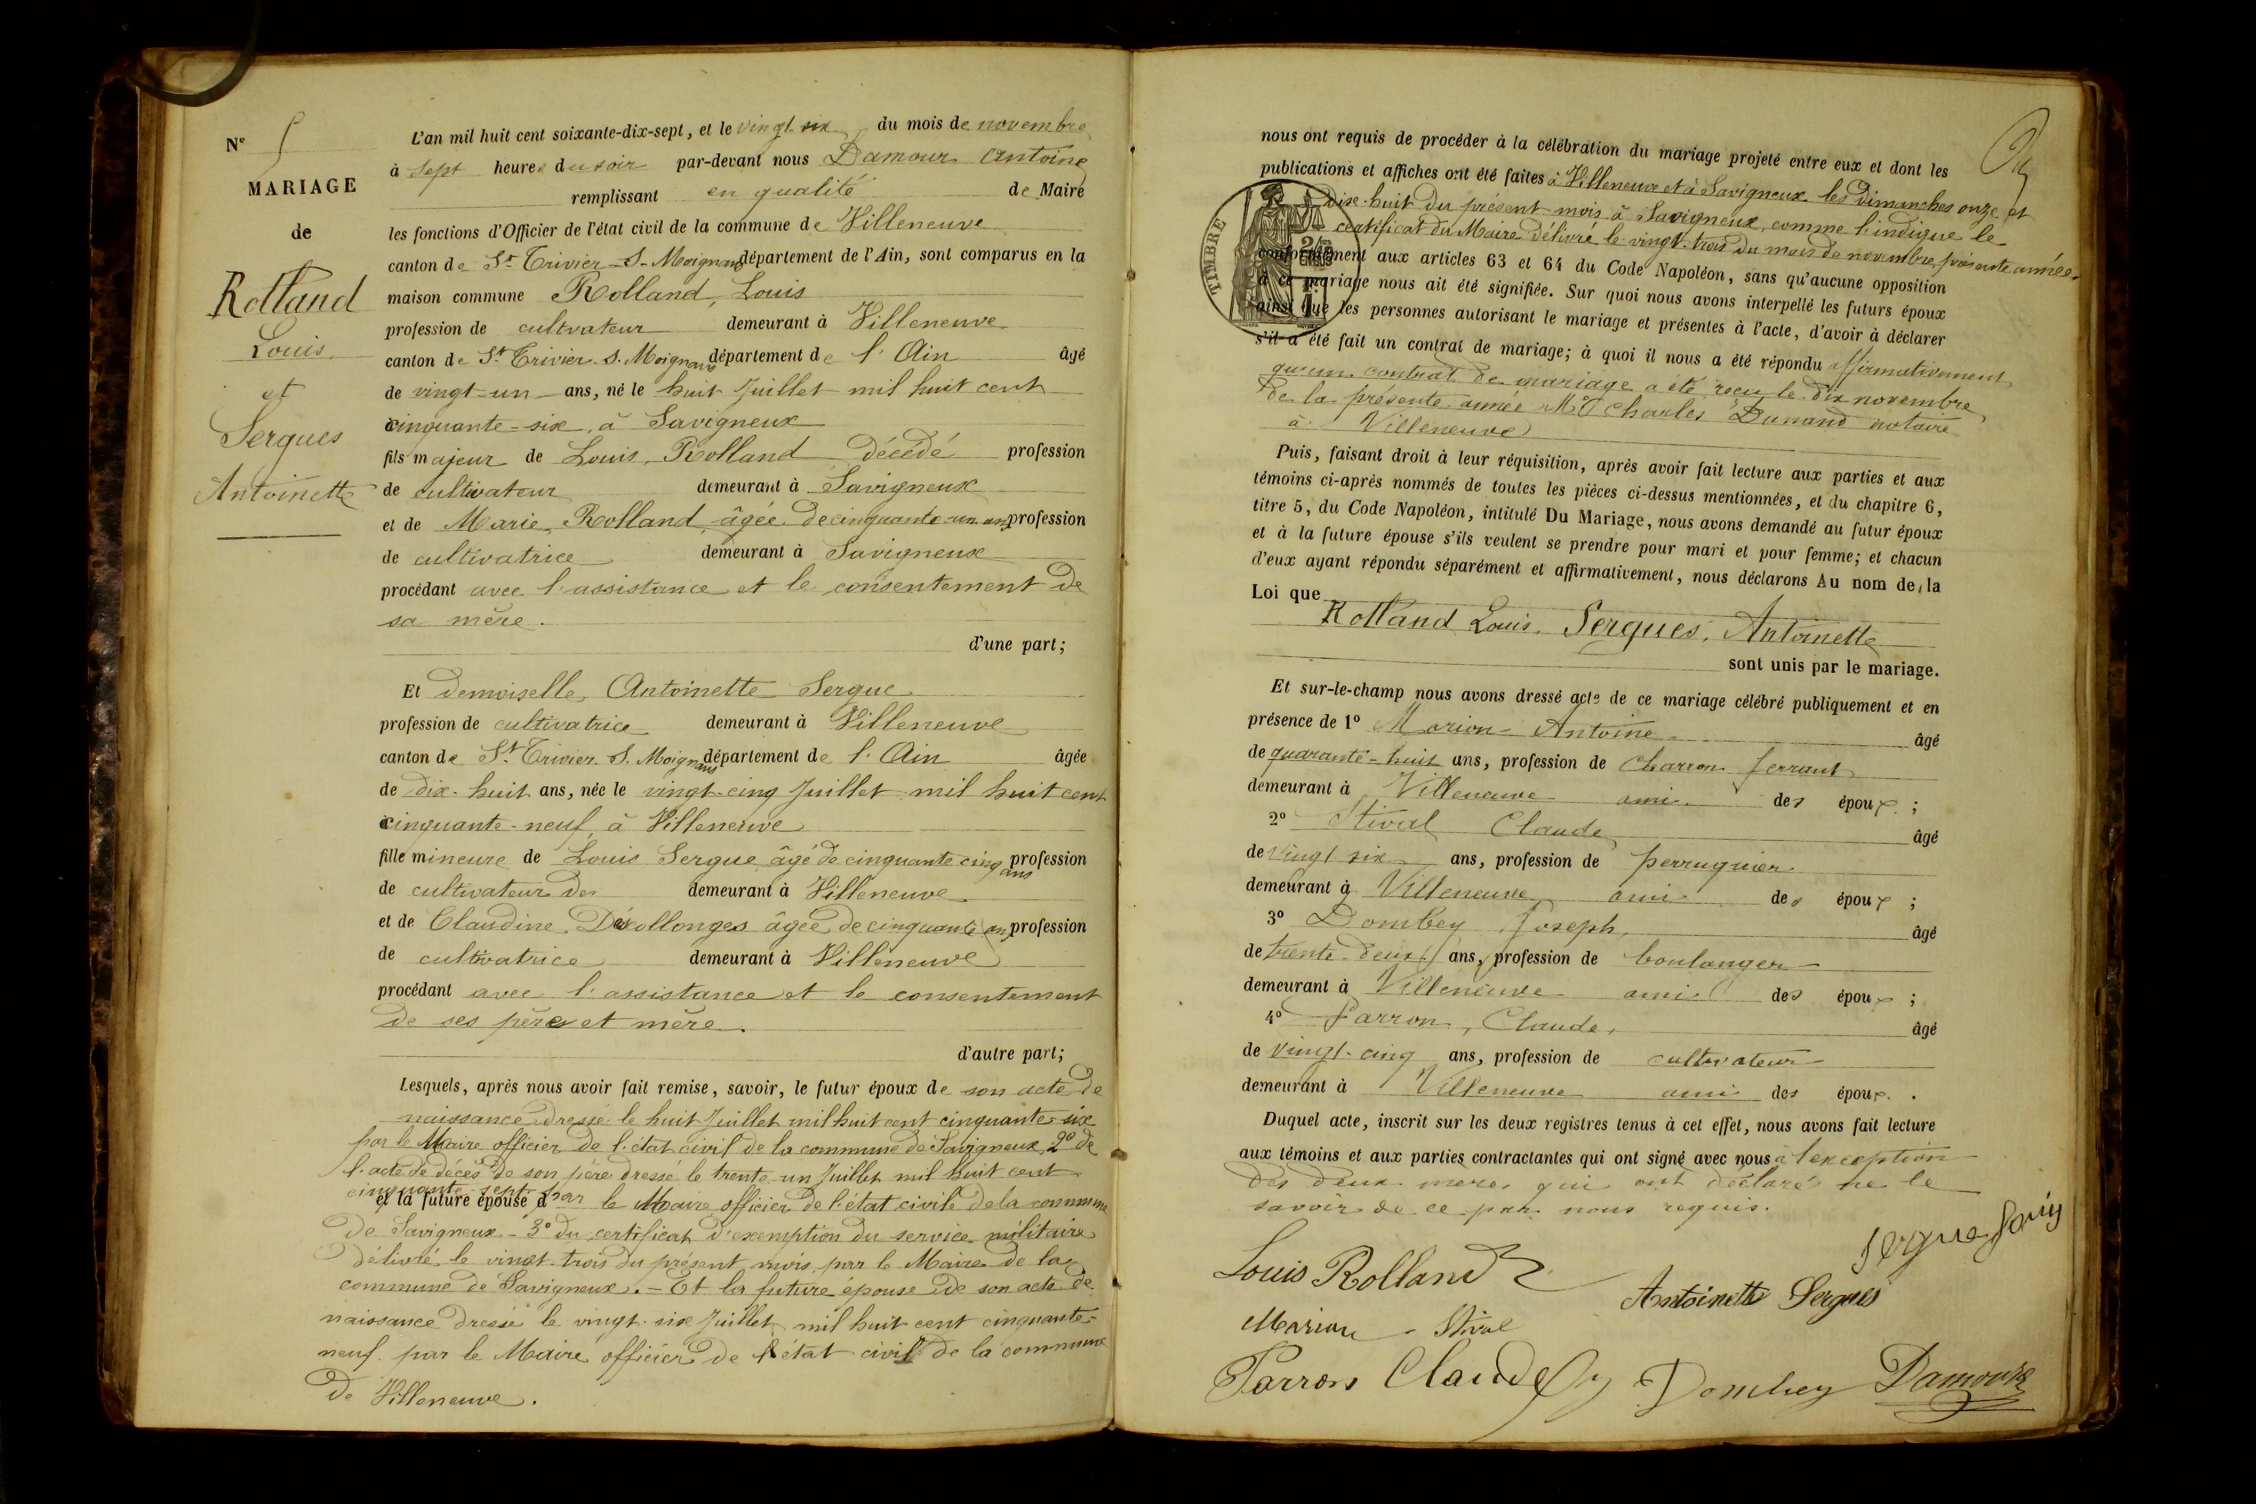 N° 5
MARIAGE
de
Rolland
Louis
et
Sergues
Antoinette
L'an mil huit cent soixante-dix-sept, et le vingt six du mois de novembre
à sept heures du soir par-devant nous Damour Antoine
remplissant en qualité de Maire
les fonctions d'Officier de l'état civil de la commune de Villeneuve
canton de St Trivier S. Moignans département de l'Ain, sont comparus en la
maison commune Rolland, Louis
profession de cultivateur demeurant à Villeneuve
canton de St Trivier S. Moignans département de l'Ain âgé
de vingt-un ans, né le huit Juillet mil huit cent
cinquante-six, à Savigneux
fils majeur de Louis Rolland décédé profession
de cultivateur demeurant à Savigneux
et de Marie Rolland âgée de cinquante-un ans profession
de cultivatrice demeurant à Savigneux
procédant avec l'assistance et le consentement de
sa mère.
d'une part;
Et demoiselle Antoinette Sergue
profession de cultivatrice demeurant à Villeneuve
canton de St Trivier S. Moignans département de l'Ain âgée
de dix-huit ans, née le vingt-cinq Juillet mil huit cent
cinquante-neuf, à Villeneuve
fille mineure de Louis Sergue âgé de cinquante cinq ans profession
de cultivateur demeurant à Villeneuve
et de Claudine Descollonges âgée de cinquante ans profession
de cultivatrice demeurant à Villeneuve
procédant avec l'assistance et le consentement
de ses père et mère.
d'autre part;
Lesquels, après nous avoir fait remise, savoir, le futur époux de son acte de
naissance dressé le huit Juillet mil huit cent cinquante-six
par le Maire officier de l'état civil de la commune de Savigneux, 2° de
l'acte de décès de son père dressé le trente un Juillet mil huit cent
cinquante-sept par
et la future épouse d le Maire officier de l'état civil de la commune
de Savigneux - 3° du certificat d'exemption du service militaire
délivré le vingt-trois du présent mois par le Maire de la
commune de Savigneux. - Et la future épouse de son acte de
naissance dressé le vingt-six Juillet mil huit cent cinquante-
neuf par le Maire officier de l'état civil de la commune
de Villeneuve.
nous ont requis de procéder à la célébration du mariage projeté entre eux et dont les
publications et affiches ont été faites à Villeneuve et à Savigneux les Dimanches onze et
dix-huit du présent mois à Savigneux, comme l'indique le
certificat du Maire délivré le vingt-trois du mois de novembre, présente année.
TIMBRE
conformément aux articles 63 et 64 du Code Napoléon, sans qu'aucune opposition
à ce mariage nous ait été signifiée. Sur quoi nous avons interpellé les futurs époux
ainsi que les personnes autorisant le mariage et présentes à l'acte, d'avoir à déclarer
s'il a été fait un contrat de mariage; à quoi il nous a été répondu affirmativement
qu'un contrat de mariage a été reçu le dix novembre
de la présente année Me Charles Dunand notaire
à Villeneuve
Puis, faisant droit à leur réquisition, après avoir fait lecture aux parties et aux
témoins ci-après nommés de toutes les pièces ci-dessus mentionnées, et du chapitre 6,
titre 5, du Code Napoléon, intitulé Du Mariage, nous avons demandé au futur époux
et à la future épouse s'ils veulent se prendre pour mari et pour femme; et chacun
d'eux ayant répondu séparément et affirmativement, nous déclarons Au nom de la
Loi que
Rolland Louis. Sergues, Antoinette
sont unis par le mariage.
Et sur-le-champ nous avons dressé acte de ce mariage célébré publiquement et en
présence de 1° Marion Antoine âgé
de quarante-huit ans, profession de charron ferrant
demeurant à Villeneuve ami des époux;
2° Stival Claude âgé
de vingt six ans, profession de perruquier
demeurant à Villeneuve ami des époux;
3° Dombey Joseph, âgé
de trente-deux ans, profession de boulanger
demeurant à Villeneuve ami des époux;
4° Parron, Claude, âgé
de vingt-cinq ans, profession de cultivateur
demeurant à Villeneuve ami des époux.
Duquel acte, inscrit sur les deux registres tenus à cet effet, nous avons fait lecture
aux témoins et aux parties contractantes qui ont signé avec nous à l'exception
des deux mères qui ont déclaré ne le
savoir de ce par nous requis.
Sergue Louis
Louis Rolland
Antoinette Sergues
Marion Stival
Parron Claude Dombey Damour